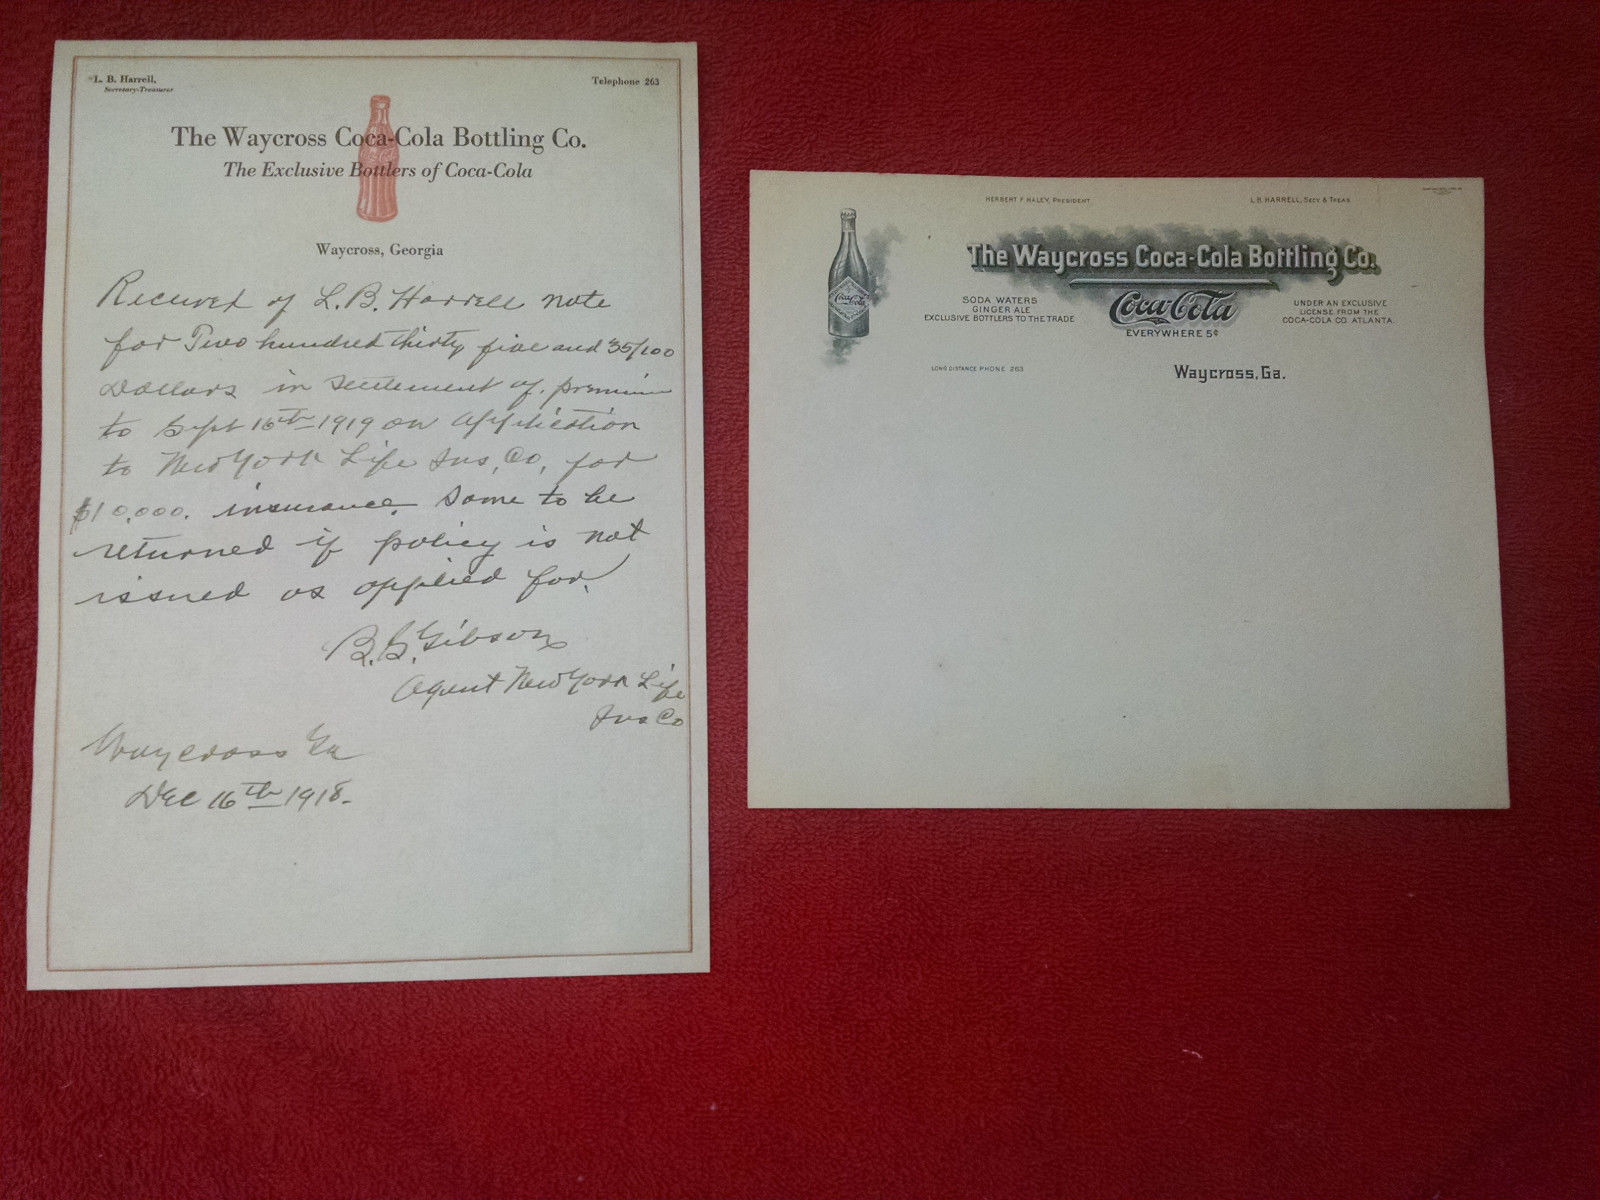 L. B. Harrell,
Secretary-Treasurer
Telephone 263
The Waycross Coca-Cola Bottling Co.
The Exclusive Bottlers of Coca-Cola
Waycross, Georgia
Received of L. B. Harrell note
for Two hundred thirty five and 35/100
Dollars in settlement of premium
to Sept 16th 1919 on application
to New York Life Ins, Co, for
$10,000. insurance. Same to be
returned if policy is not
issued as applied for.
B. G. Gibson
Agent New York Life
Ins Co
Waycross Ga
Dec 16th 1918.
HERBERT F HALEY, PRESIDENT
L.B. HARRELL, SECY & TREAS.
The Waycross Coca-Cola Bottling Co.
Coca-Cola
SODA WATERS
GINGER ALE
EXCLUSIVE BOTTLERS TO THE TRADE
Coca-Cola
EVERYWHERE 5¢
UNDER AN EXCLUSIVE
LICENSE FROM THE
COCA-COLA CO ATLANTA.
LONG DISTANCE PHONE 263
Waycross, Ga.